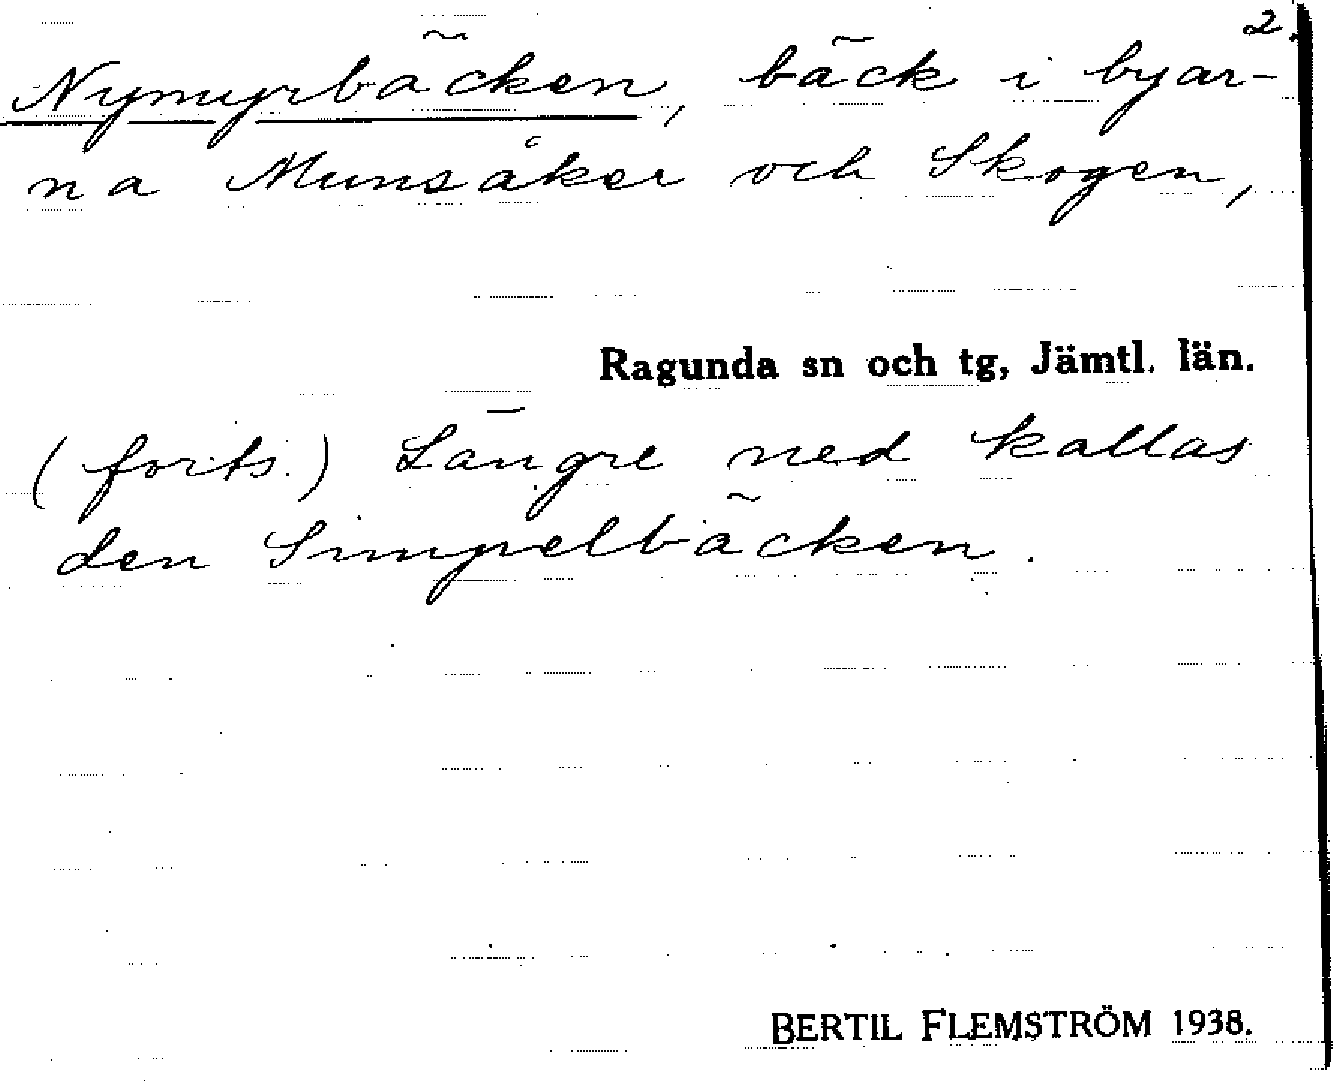 2.
Nymyrbäcken, bäck i byar-
na Munsåker och Skogen,
Ragunda sn och tg, Jämtl. län.
(forts.) Längre ned kallas
den Simpelbäcken.
BERTIL FLEMSTRÖM 1938.